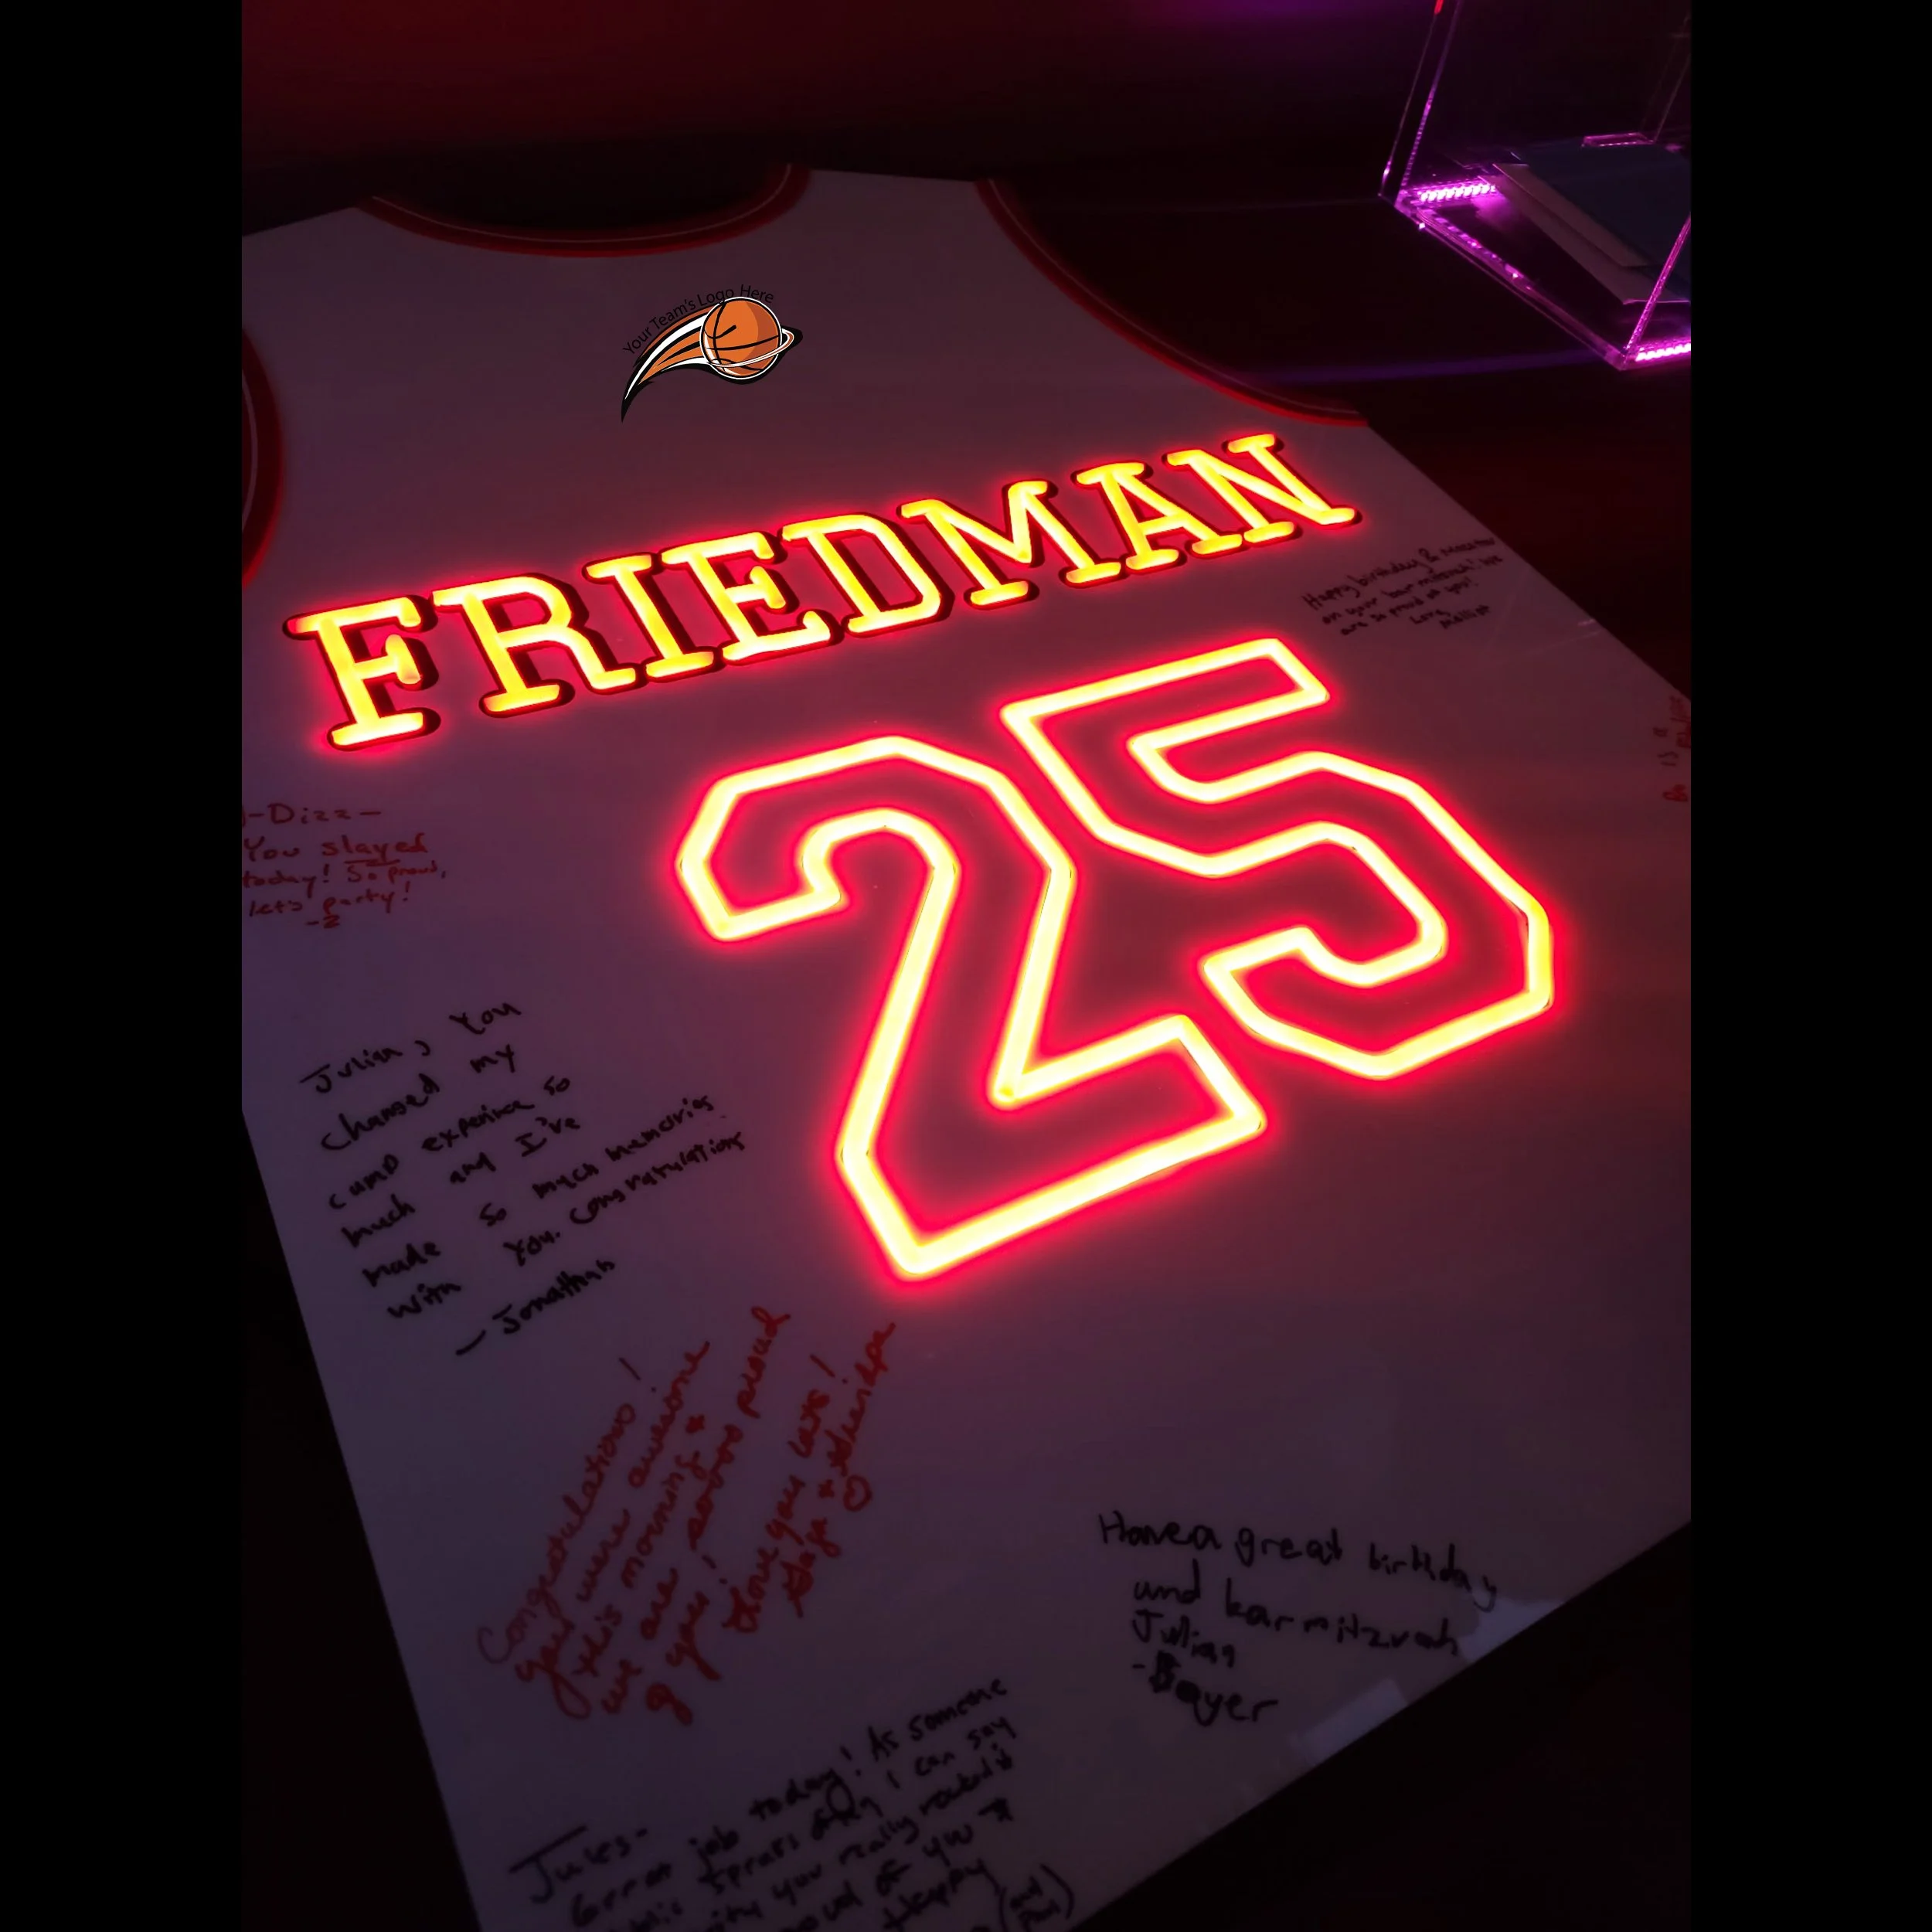 Your Team's Logo Here
FRIEDMAN
25
Happy birthday &
on your bar mitzvah! We
are so proud of you!
Love,
-Dizz-
You slayed
today! So proud,
let's party!
-Z
is a
Julian, You
changed my
camp experince so
much and I've
made so much memories
with you. congratulations
- Jonathan
Congratulations!
you were awesome
this morning &
we are soooo proud
of you!
Love you lots!
& Grandpa
Have a great birthday
and bar mitzvah
Julian
Jules-
Great job today! As someone
I can say
you really rocked it
of you
Happy